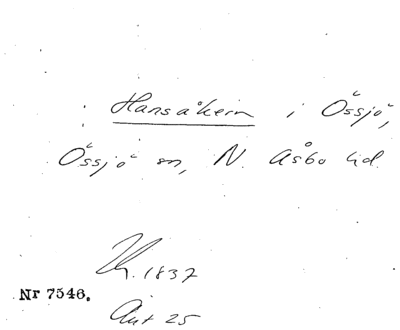 Hansåkern i Össjö,
Össjö sn, N. Åsbo hd.
Kh. 1837
Nr 7546.
Akt 25